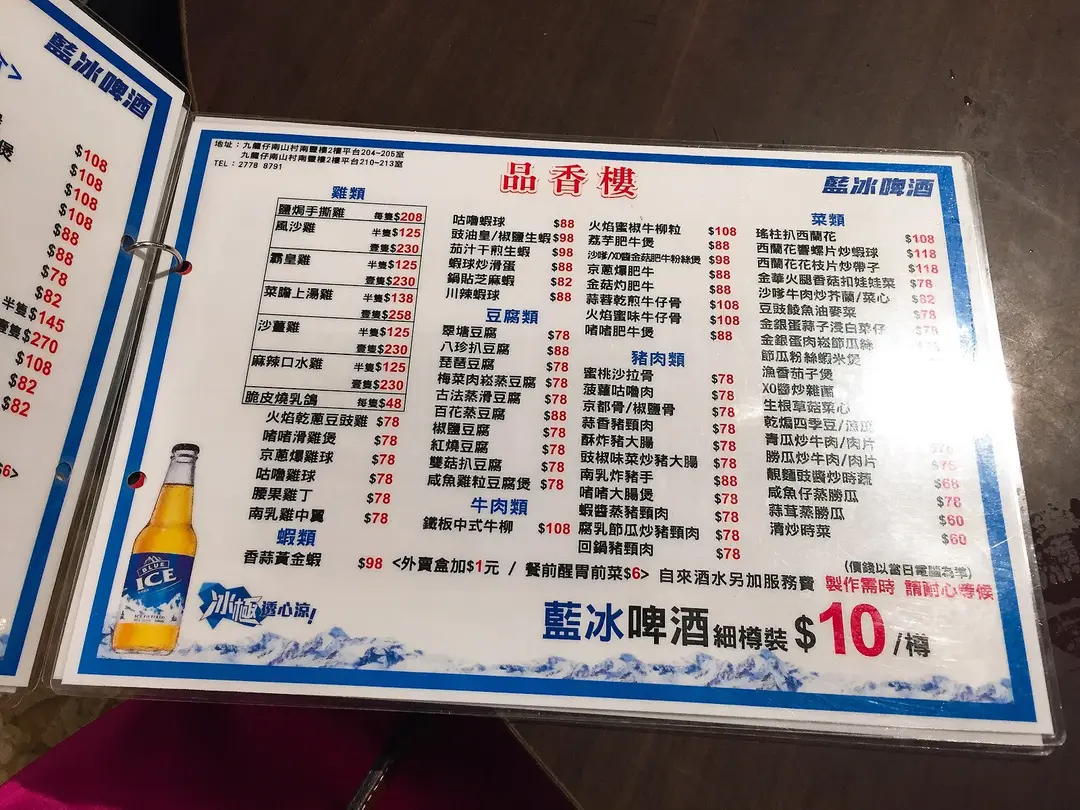 藍冰啤酒
煲
$108
$108
$108
$108
$88
$88
$78
$82
半隻$145
壹隻$270
$108
$82
$82
$6>
地址：九龍仔南山村南豐樓2樓平台204-205室
九龍仔南山村南豐樓2樓平台210-213室
TEL：2778 8791
品香樓
藍冰啤酒
雞類
鹽焗手撕雞 每隻$208
風沙雞 半隻$125
壹隻$230
霸皇雞 半隻$125
壹隻$230
菜膽上湯雞 半隻$138
壹隻$258
沙薑雞 半隻$125
壹隻$230
麻辣口水雞 半隻$125
壹隻$230
脆皮燒乳鴿 每隻$48
火焰乾蔥豆豉雞 $78
啫啫滑雞煲 $78
京蔥爆雞球 $78
咕嚕雞球 $78
腰果雞丁 $78
南乳雞中翼 $78
蝦類
香蒜黃金蝦 $98
咕嚕蝦球 $88
豉油皇/椒鹽生蝦 $98
茄汁干煎生蝦 $98
蝦球炒滑蛋 $88
鍋貼芝麻蝦 $82
川辣蝦球 $88
豆腐類
翠塘豆腐 $78
八珍扒豆腐 $88
琵琶豆腐 $78
梅菜肉崧蒸豆腐 $78
古法蒸滑豆腐 $78
百花蒸豆腐 $88
椒鹽豆腐 $78
紅燒豆腐 $78
雙菇扒豆腐 $78
咸魚雞粒豆腐煲 $78
牛肉類
鐵板中式牛柳 $108
火焰蜜椒牛柳粒 $108
荔芋肥牛煲 $88
沙嗲/XO醬金菇肥牛粉絲煲 $98
京蔥爆肥牛 $88
金菇灼肥牛 $88
蒜蓉乾煎牛仔骨 $108
火焰蜜味牛仔骨 $108
啫啫肥牛煲 $88
豬肉類
蜜桃沙拉骨 $78
菠蘿咕嚕肉 $78
京都骨/椒鹽骨 $78
蒜香豬頸肉 $78
酥炸豬大腸 $78
豉椒味菜炒豬大腸 $78
南乳炸豬手 $88
啫啫大腸煲 $78
蝦醬蒸豬頸肉 $78
腐乳節瓜炒豬頸肉 $78
回鍋豬頸肉 $78
菜類
瑤柱扒西蘭花 $108
西蘭花響螺片炒蝦球 $118
西蘭花花枝片炒帶子 $118
金華火腿香菇扣娃娃菜 $78
沙嗲牛肉炒芥蘭/菜心 $82
豆豉鯪魚油麥菜 $78
金銀蛋蒜子浸白菜仔 $78
金銀蛋肉崧節瓜絲
節瓜粉絲蝦米煲
漁香茄子煲
XO醬炒雜菌
生根草菇菜心
乾煸四季豆/
青瓜炒牛肉/肉片
勝瓜炒牛肉/肉片 $78
靚麵豉醬炒時蔬 $68
咸魚仔蒸勝瓜 $78
蒜茸蒸勝瓜 $60
清炒時菜 $60
<外賣盒加$1元 / 餐前醒胃前菜$6> 自來酒水另加服務費
(價錢以當日電腦為準)
製作需時 請耐心等候
BLUE
ICE
冰極透心涼!
藍冰啤酒細樽裝$10/樽